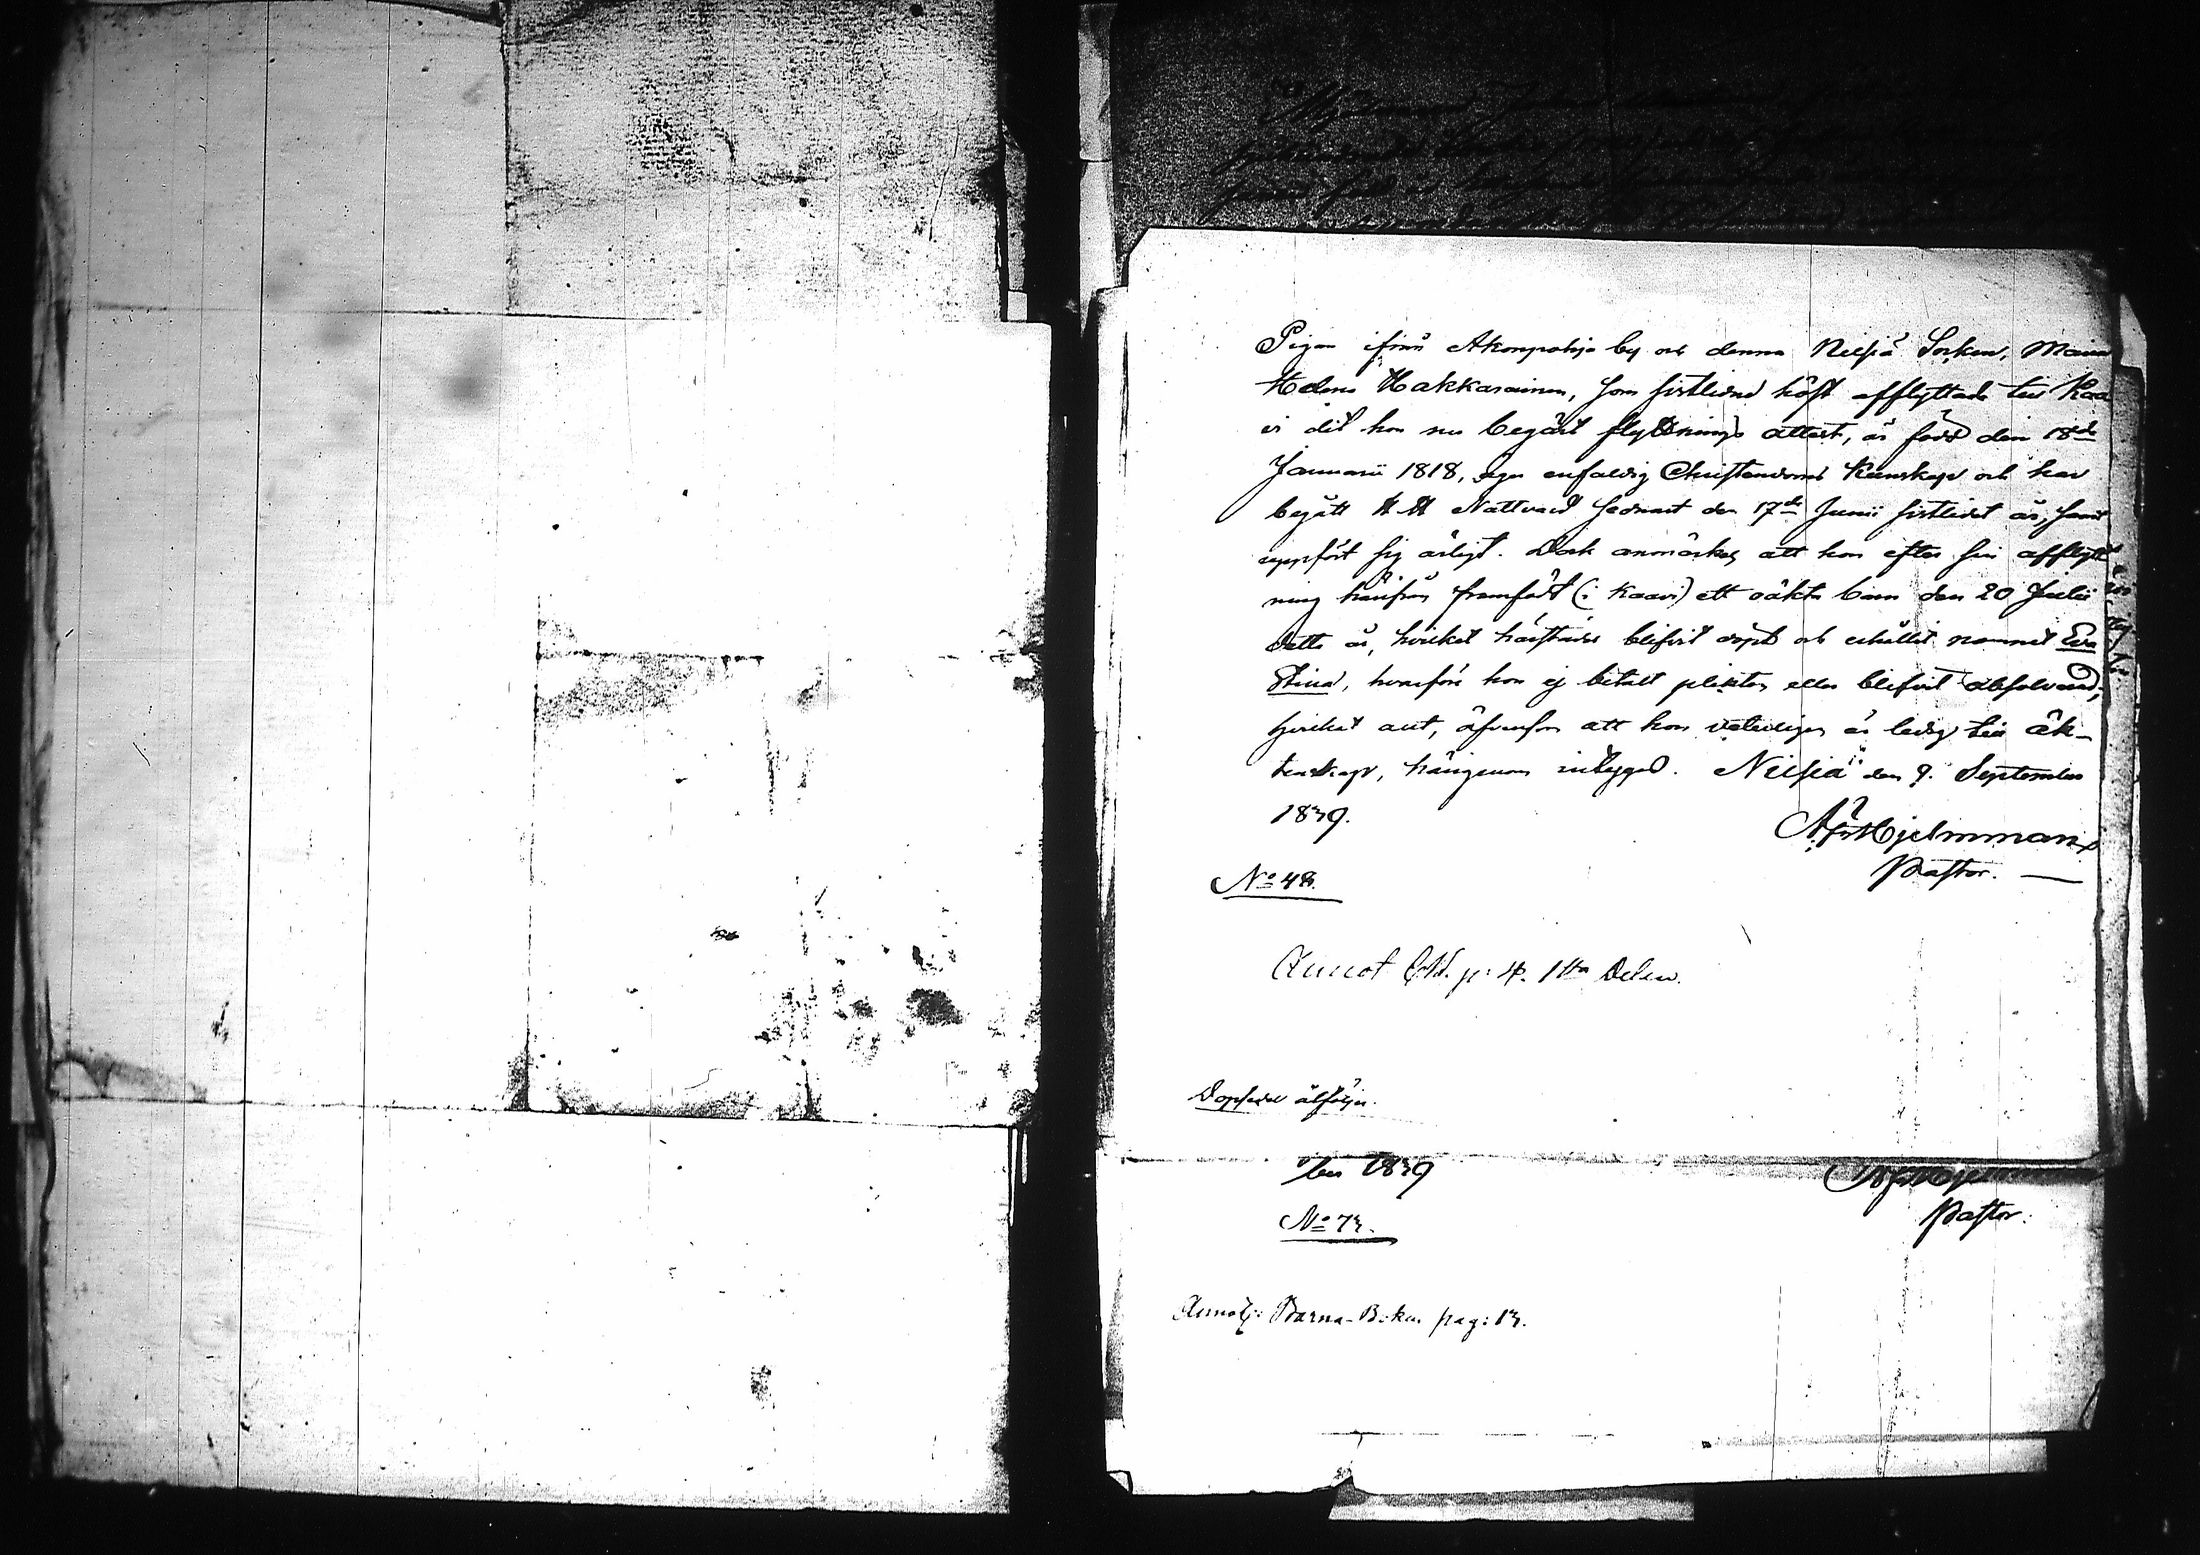 Pigan ifrån Akonpohja by och denna Nilsiä Socken, Maria
Helena Hakkarainen, som sistledne höst afflyttade till Kaa
vi dit hon nu begärt flyttnings attest, är född den 18de
Januarii 1818, äger enfaldig Christendoms Kunskap och har
begått H. H. Nattvard sednast den 17de Junii sistledet år, samt
uppfört sig ärligt. Dock anmärkes att hon efter sin afflytt
ning härifrån framfödt (i Kaavi) ett oäkta barn den 20 Julii
detta år, hvilket härstädes blifvit döpt och erhållit namnet Eva
Stina, hvarföre hon ej betalt plikten eller blifvit absolverad,
hvilket allt, äfvensom att hon vederligen är ledig till äk-
tenskap, härigenom intygas. Nilsiä den 9. September
1839.
A. F. Hjelmman
Pastor.
No 48.
Annot Cold. p: 4. 1sta Delen.
Dopsedel åtföljer.
ber 1839
Pastor.
No 73.
Annot. i Barna-Boken pag: 13.